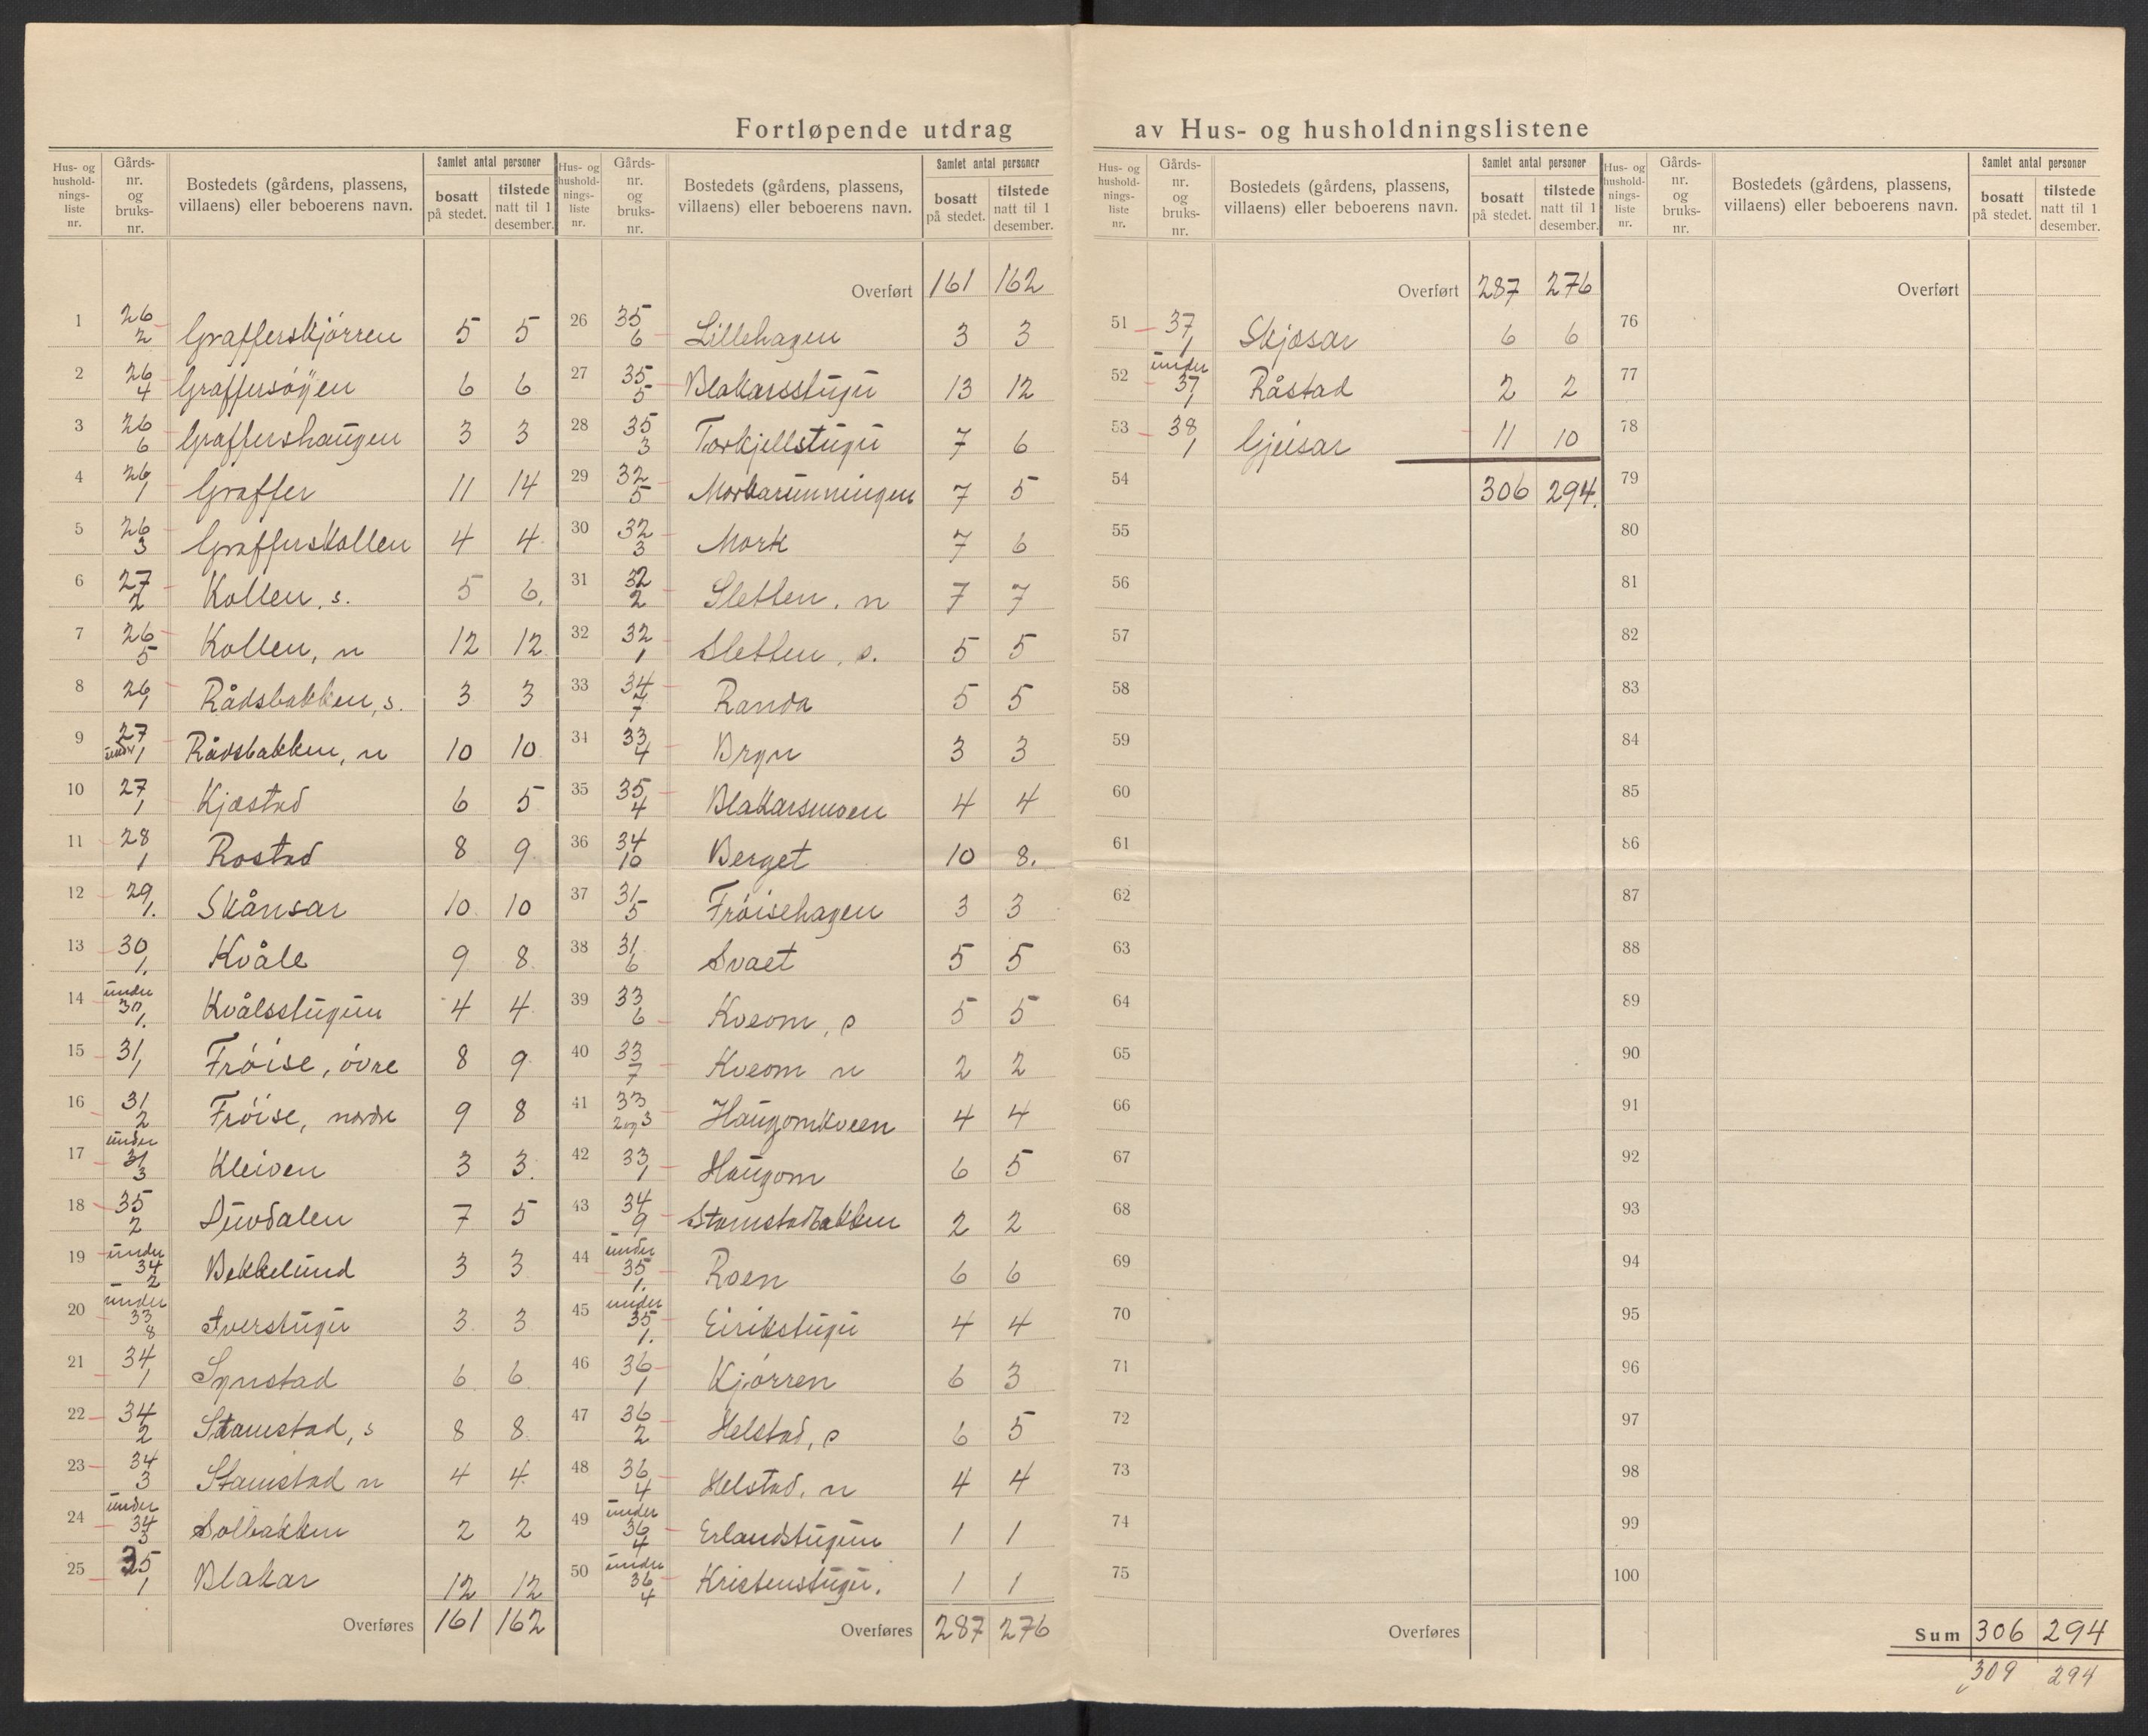 Fortløpende utdrag av Hus- og husholdningslistene
Hus- og hushold- nings- liste nr. | Gårds- nr. og bruks- nr. | Bostedets (gårdens, plassens, villaens) eller beboerens navn. | Samlet antal personer | bosatt på stedet. | tilstede natt til 1 desember.
1 26/2 Grafferskjørren 5 5
2 26/4 Graffersøyen 6 6
3 26/6 Graffershaugen 3 3
4 26/1 Graffer 11 14
5 26/3 Grafferskollen 4 4
6 27/2 Kollen, s. 5 6.
7 26/5 Kollen, n 12 12
8 26/1 Rådsbakken, s. 3 3
9 27/1 under Rådsbakken, n 10 10
10 27/1 Kjæstad 6 5
11 28/1 Rostad 8 9
12 29/1. Skånsar 10 10
13 30/1. Kvåle 9 8
14 under 30/1. Kvålsstugun 4 4
15 31/1 Frøise, øvre 8 9
16 31/2 Frøise, nordre 9 8
17 under 31/3 Kleiven 3 3.
18 35/2 Duvdalen 7 5
19 under 34/2 Bekkelund 3 3
20 under 33/8 Iverstugu 3 3
21 34/1 Synstad 6 6
22 34/2 Stamstad, s 8 8
23 34/3 Stamstad n 4 4
24 under 34/3 Solbakken 2 2
25 35/1 Blakar 12 12
Overføres 161 162
Hus- og hushold- nings- liste nr. | Gårds- nr. og bruks- nr. | Bostedets (gårdens, plassens, villaens) eller beboerens navn. | Samlet antal personer | bosatt på stedet. | tilstede natt til 1 desember.
Overført 161 162
26 35/6 Lillehagen 3 3
27 35/5 Blakarsstugu 13 12
28 35/3 Torkjellstugu 7 6
29 32/5 Morkarunningen 7 5
30 32/3 Mork 7 6
31 32/2 Sletten, n 7 7
32 32/1 Sletten, s. 5 5
33 34/7 Randa 5 5
34 33/4 Bryn 3 3
35 35/4 Blakarsmoen 4 4
36 34/10 Berget 10 8.
37 31/5 Frøisehagen 3 3
38 31/6 Svaet 5 5
39 33/6 Kveom, s 5 5
40 33/7 Kveom n 2 2
41 33/2 og 3 Haugomkveen 4 4
42 33/1 Haugom 6 5
43 34/9 Stamstadbakken 2 2
44 under 35/1. Roen 6 6
45 under 35/1. Eirikstugu 4 4
46 36/1 Kjørren 6 3
47 36/2 Helstad, s 6 5
48 36/4 Helstad, n 4 4
49 under 36/4 Erlandstugun 1 1
50 under 36/4 Kristenstugu. 1 1
Overføres 287 276
Hus- og hushold- nings- liste nr. | Gårds- nr. og bruks- nr. | Bostedets (gårdens, plassens, villaens) eller beboerens navn. | Samlet antal personer | bosatt på stedet. | tilstede natt til 1 desember.
Overført 287 276
51 37/1 Skjæsar 6 6
52 under 37/1 Råstad 2 2
53 38/1 Gjeisar 11 10
54 306 294.
55
56
57
58
59
60
61
62
63
64
65
66
67
68
69
70
71
72
73
74
75
Overføres
Hus- og hushold- nings- liste nr. | Gårds- nr. og bruks- nr. | Bostedets (gårdens, plassens, villaens) eller beboerens navn. | Samlet antal personer | bosatt på stedet. | tilstede natt til 1 desember.
Overført
76
77
78
79
80
81
82
83
84
85
86
87
88
89
90
91
92
93
94
95
96
97
98
99
100
Sum 306 294
309 294